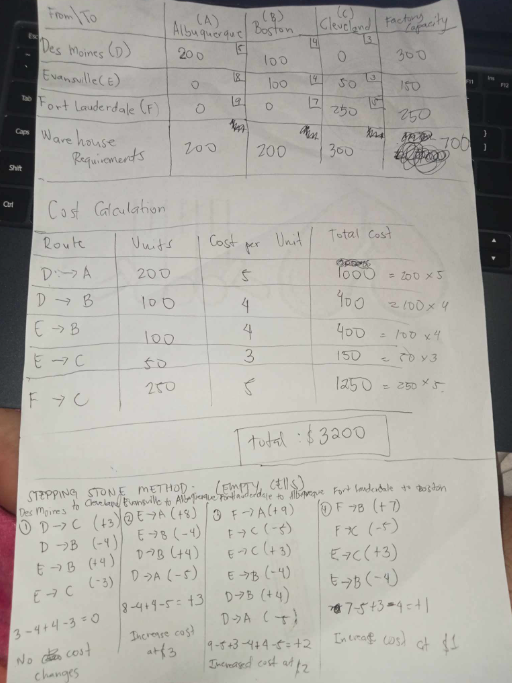 From\To (A) Albuquerque (B) Boston (C) Cleveland Factory Capacity
Des Moines (D) 200 5 100 4 0 3 300
Evansville (E) 0 8 100 4 50 3 150
Fort Lauderdale (F) 0 9 0 7 250 5 250
Warehouse Requirements 200 200 300 700
Cost Calculation
Route Units Cost per Unit Total Cost
D → A 200 5 1000 = 200 x 5
D → B 100 4 400 = 100 x 4
E → B 100 4 400 = 100 x 4
E → C 50 3 150 = 50 x 3
F → C 250 5 1250 = 250 x 5
Total: $3200
STEPPING STONE METHOD - (EMPTY CELLS)
Des Moines to Cleveland
① D → C (+3)
D → B (-4)
E → B (+4)
E → C (-3)
3-4+4-3=0
No cost
changes
Evansville to Albuquerque
② E → A (+8)
E → B (-4)
D → B (+4)
D → A (-5)
8-4+4-5=+3
Increase cost
at $3
Fort Lauderdale to Albuquerque
③ F → A (+9)
F → C (-5)
E → C (+3)
E → B (-4)
D → B (+4)
D → A (-5)
9-5+3-4+4-5=+2
Increased cost at $2
Fort Lauderdale to Boston
④ F → B (+7)
F → C (-5)
E → C (+3)
E → B (-4)
7-5+3-4=+1
Increase cost at $1
Esc
Tab
Caps
Shift
Ctrl